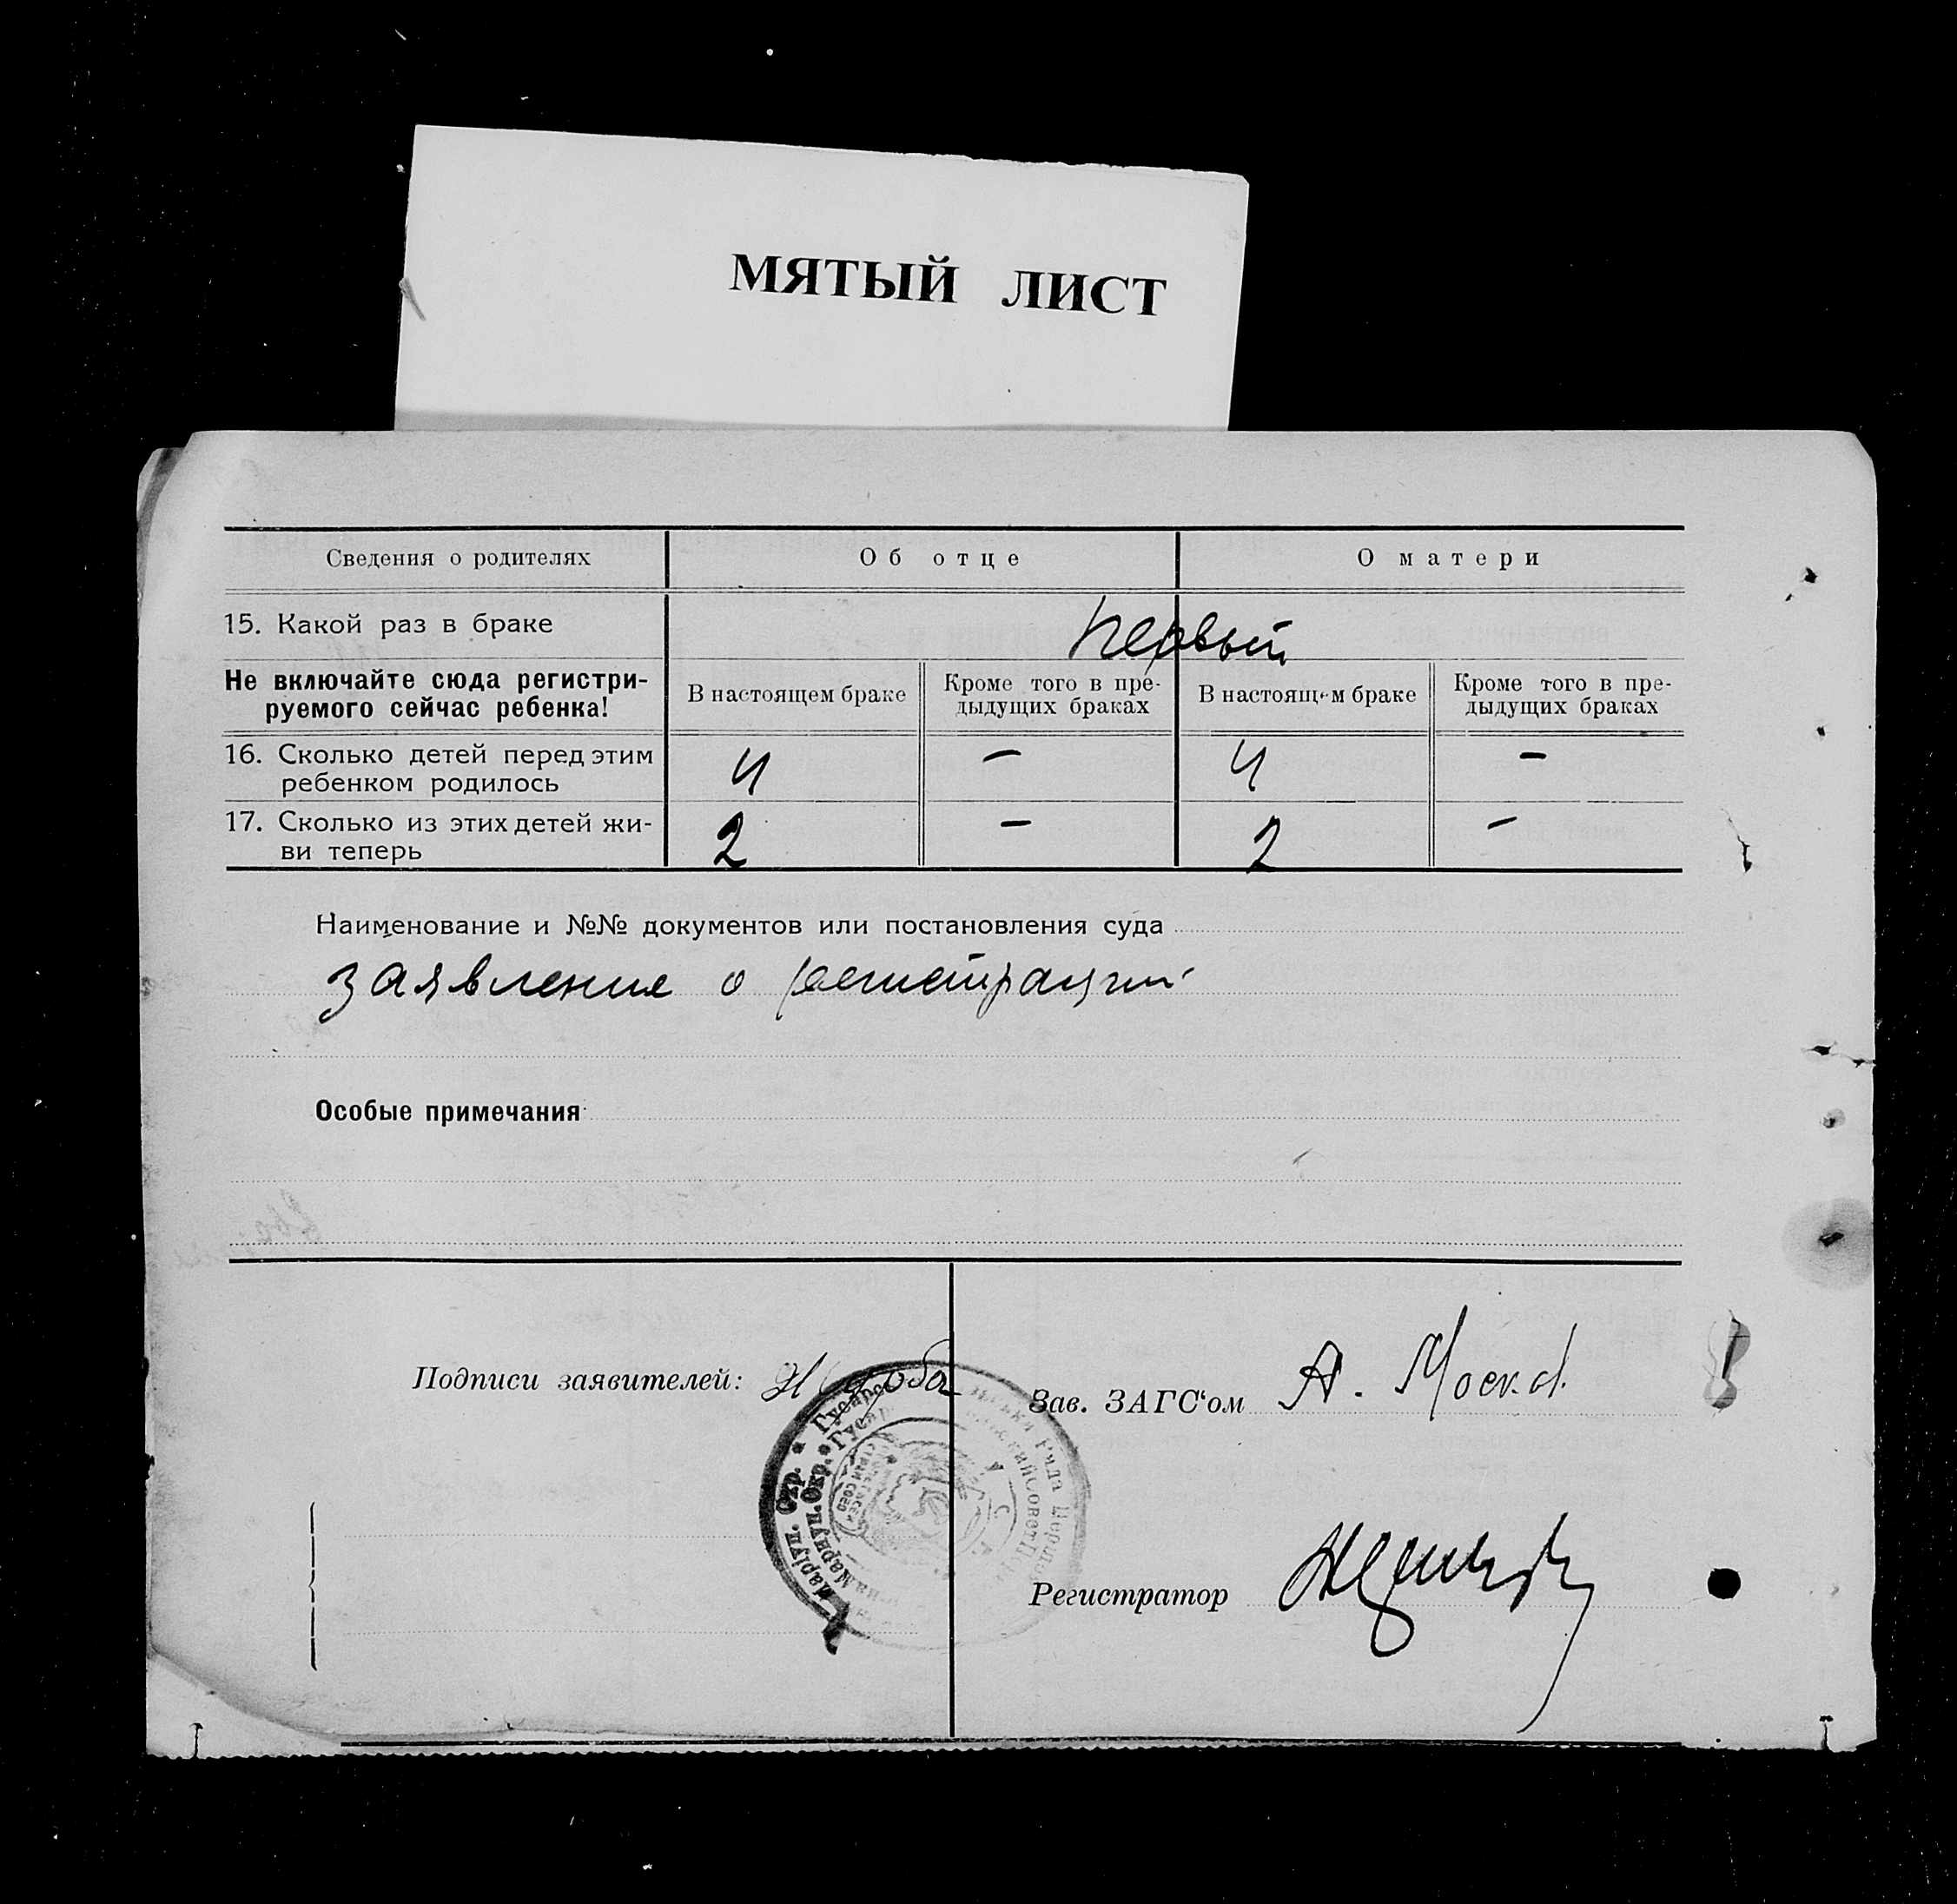 МЯТЫЙ ЛИСТ
Сведения о родителях Об отце О матери
15. Какой раз в браке Первый
Не включайте сюда регистри-
руемого сейчас ребенка!
В настоящем браке
Кроме того в пре-
дыдущих браках
В настоящем браке
Кроме того в пре-
дыдущих браках
16. Сколько детей перед этим
ребенком родилось
4 – 4 –
17. Сколько из этих детей жи-
ви теперь
2 – 2 –
Наименование и №№ документов или постановления суда
заявление о регистрации
Особые примечания
Подписи заявителей:
Зав. ЗАГС‘ом А.
Маріуп. Окр. *
Мариуп. Окр. *
Рада
Регистратор